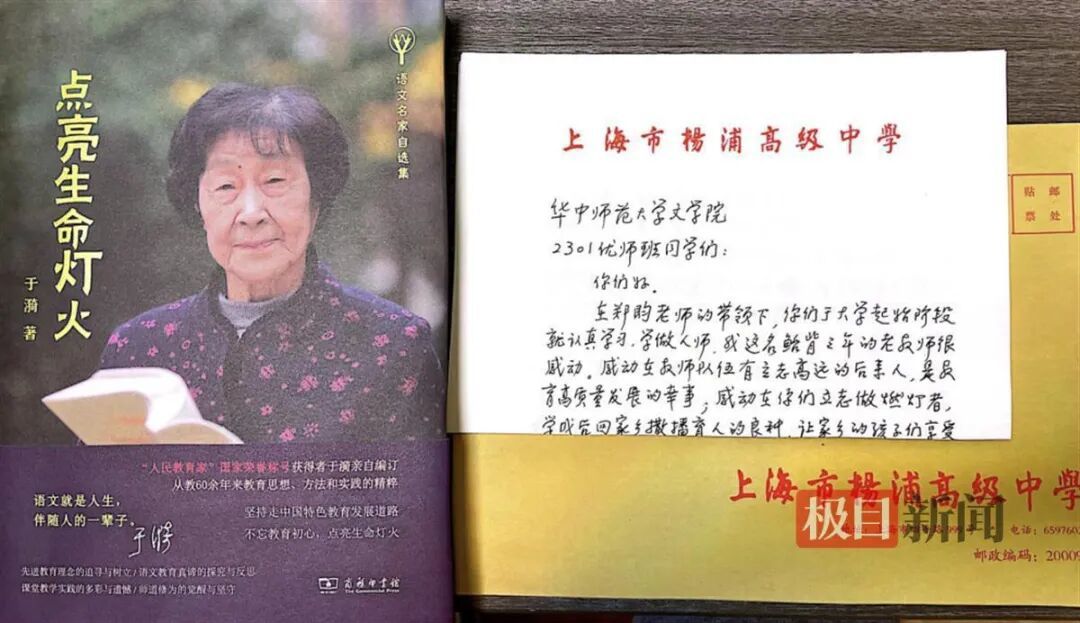 语文名家自选集
点亮生命灯火
于漪 著
“人民教育家”国家荣誉称号获得者于漪亲自编订
从教60余年来教育思想、方法和实践的精粹
语文就是人生，
伴随人的一辈子。
于漪
坚持走中国特色教育发展道路
不忘教育初心，点亮生命灯火
先进教育理念的追寻与树立/语文教育真谛的探究与反思
课堂教学实践的多彩与遗憾/师道修为的觉醒与坚守
商务印书馆
The Commercial Press
上海市楊浦高级中學
华中师范大学文学院
2301优师班同学们：
你们好。
在郑昀老师的带领下，你们于大学起始阶段
就认真学习，学做人师，我这名鲐背之年的老教师很
感动。感动在教师队伍有立志高远的后来人，是教
育高质量发展的幸事；感动在你们立志做燃灯者，
学成后回家乡撒播育人的良种，让家乡的孩子们享受
贴 邮
票 处
上海市楊浦高级中學
999号
电话：659760
邮政编码：20009
极目新闻